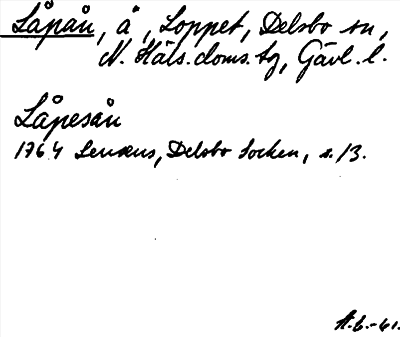 Låpån, å, Loppet, Delsbo sn,
N. Häls. doms. bg, Gävl. l.
Låpesån
1764 Lenæus, Delsbo Socken, s. 13.